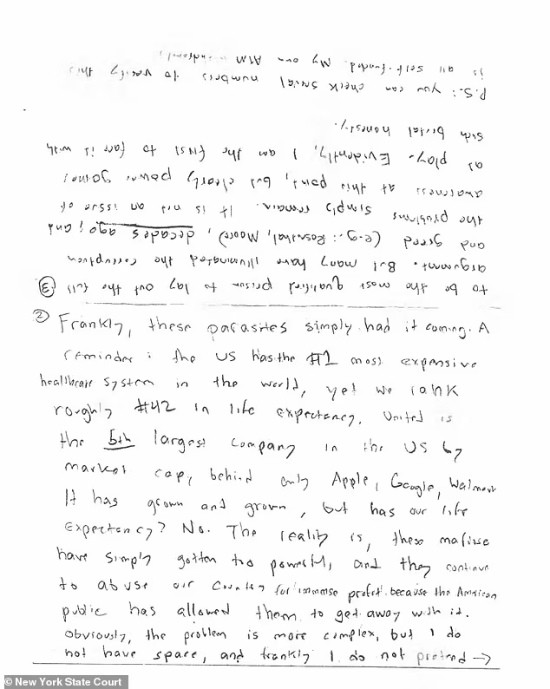 ② Frankly, these parasites simply had it coming. A
reminder: the US has the #1 most expensive
healthcare system in the world, yet we rank
roughly #42 in life expectancy. United is
the 5th largest company in the US by
market cap, behind only Apple, Google, Walmart
It has grown and grown, but has our life
expectancy? No. The reality is, these mafiosi
have simply gotten too powerful, and they continue
to abuse our country for immense profit because the American
public has allowed them to get away with it.
Obviously, the problem is more complex, but I do
not have space, and frankly I do not pretend →
③ to be the most qualified person to lay out the full
argument. But many have illuminated the corruption
and greed (e.g.: Rosenthal, Moore), decades ago, and
the problems simply remain. It is not an issue of
awareness at this point, but clearly power games
at play. Evidently, I am the first to face it with
such brutal honesty.
P.S.: you can check serial numbers to verify this
is all self-funded. My own ATM
© New York State Court